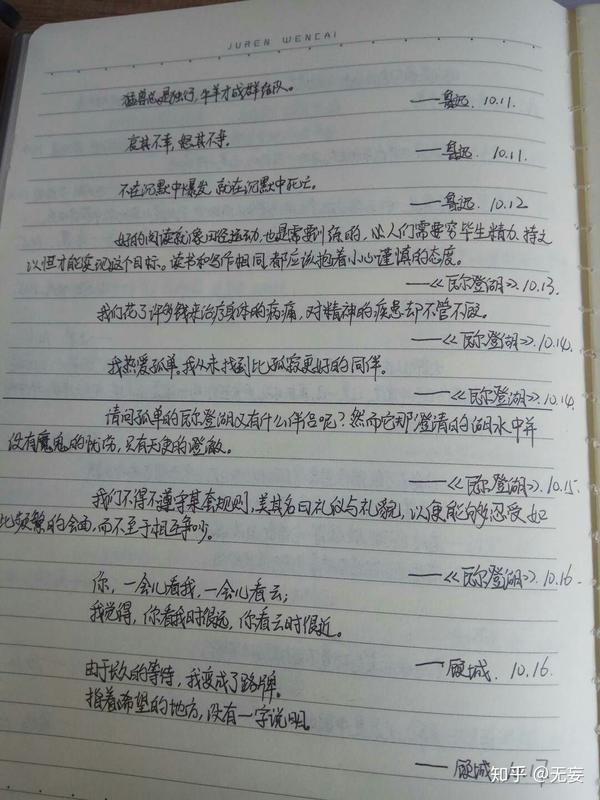 JUREN WENCAI
猛兽总是独行,牛羊才成群结队。
——鲁迅. 10.11.
哀其不幸,怒其不争。
——鲁迅. 10.11
不在沉默中爆发,就在沉默中死亡。
——鲁迅. 10.12
好的阅读就像田径运动,也是需要训练的,以人们需要穷毕生精力、持之
以恒才能实现这个目标。读书和写作相同,都应该抱着小心谨慎的态度。
——《瓦尔登湖》. 10.13.
我们花了许多钱来治疗身体的病痛,对精神的疾患却不管不顾。
——《瓦尔登湖》. 10.14.
我热爱孤单。我从未找到比孤寂更好的同伴。
——《瓦尔登湖》. 10.14
请问孤单的瓦尔登湖又有什么伴侣呢?然而它那澄清的湖水中并
没有魔鬼的忧伤,只有天使的澄澈。
——《瓦尔登湖》. 10.15.
我们不得不遵守某套规则,美其名曰礼仪与礼貌,以便能够忍受如
此频繁的会面,而不至于相互争吵。
——《瓦尔登湖》. 10.16.
你,一会儿看我,一会儿看云;
我觉得,你看我时很远,你看云时很近。
——顾城. 10.16.
由于长久的等待,我变成了路牌。
指着希望的地方,没有一字说明。
——顾城 17
知乎 @无妄